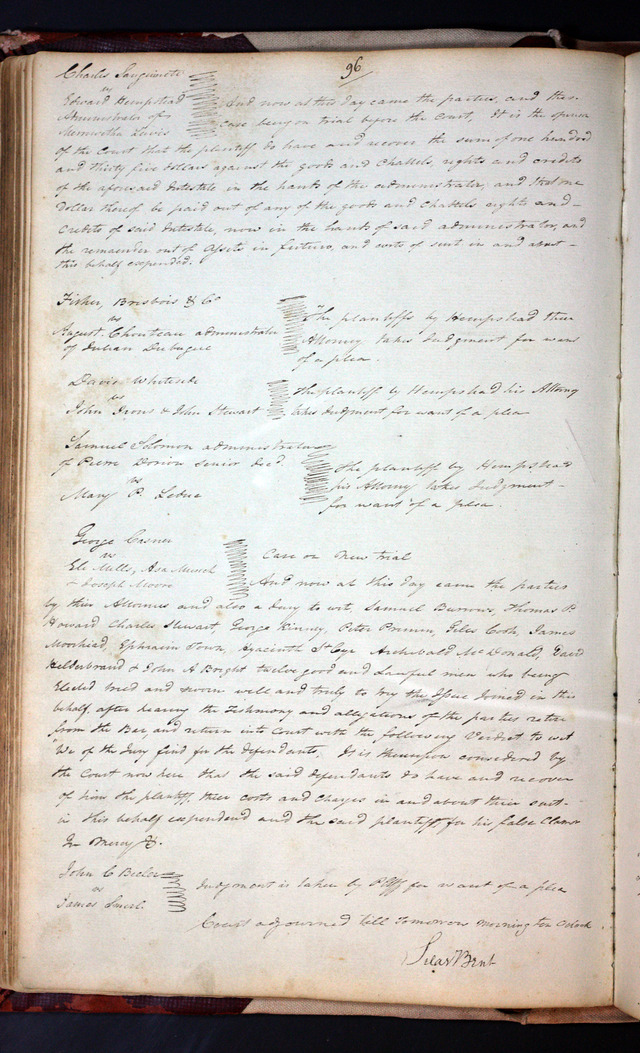 96
Charles Sanguinette
vs
Edward Hempstead
Administrator of
Meriwether Lewis
And now at this day came the parties, and this
case being on trial before the Court, It is the opinion
of the Court that the plaintiff do have and recover the sum of one hundred
and thirty five dollars against the goods and Chattels, rights and credits
of the aforesaid Intestate in the hands of the administrator, and that one
Dollar thereof be paid out of any of the goods and Chattels rights and
Credits of said Intestate, now in the hands of said administrator, and
the remainder out of Assets in futuro, and costs of suit in and about
this behalf expended.
Fisher, Brisbois & Co
vs
August Chouteau administrator
of Julian Dubuque
The plaintiffs by Hempstead their
Attorney takes Judgment for want
of a plea.
David Whiteside
vs
John Irons & John Stewart
The plaintiff by Hempstead his Attorney
takes Judgment for want of a plea
Samuel Solomon administrator
of Pierre Dorion Senior decd.
vs
Mary P. Leduc
The plaintiff by Hempstead
his Attorney takes Judgment
for want of a plea.
George Casner
vs
Eli Mills, Asa Musick
& Joseph Moore
Case on New trial
And now at this day came the parties
by their Attornies and also a Jury to wit, Samuel Burrows, Thomas P.
Howard Charles Stewart, George Kinney, Peter Primm, Giles Cook, James
Moorhead, Ephraim Town, Hyacinth St Cyr Archibald McDonald, David
Helderbrand & John A Bright twelve good and Lawful men who being
Elected tried and sworn well and truly to try the Issue Joined in this
behalf, after hearing the Testimony and allegations of the parties retire
from the Bar and return into Court with the following Verdict to wit
We of the Jury find for the defendants. It is thereupon considered by
the Court now here that the said defendants do have and recover
of him the plaintiff, their costs and Charges in and about their suit
in this behalf expended and the said plaintiff for his false Clamor
In Mercy &c.
John C Beeler
vs
James
Judgment is taken by Pltff for want of a plea
Court adjourned till Tomorrow morning ten oClock
Silas Bent